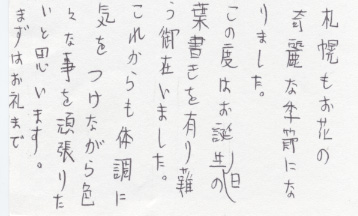 札幌もお花の
奇麗な季節にな
りました。
この度はお誕生(日)の
葉書きを有り難
う御在いました。
これからも体調に
気をつけながら色
々な事を頑張りた
いと思います。
まずはお礼まで